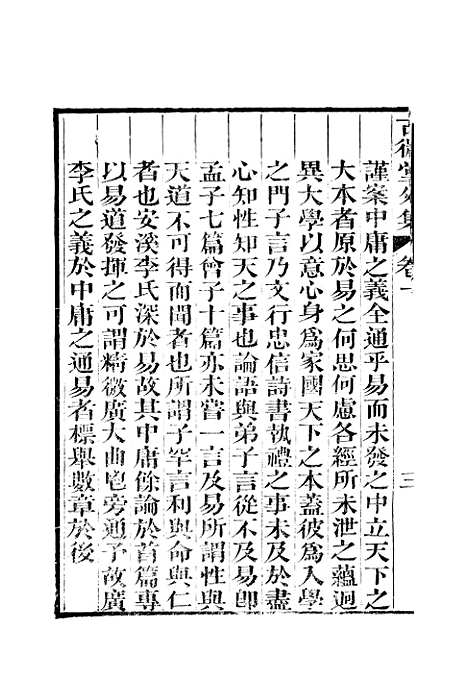 古微堂外集 卷一 三
謹案中庸之義全通乎易而未發之中立天下之
大本者原於易之何思何慮各經所未泄之蘊迥
異大學以意心身爲家國天下之本蓋彼爲入學
之門子言乃文行忠信詩書執禮之事未及於盡
心知性知天之事也論語與弟子言從不及易卽
孟子七篇曾子十篇亦未嘗一言及易所謂性與
天道不可得而聞者也所謂子罕言利與命與仁
者也安溪李氏深於易故其中庸餘論於首篇專
以易道發揮之可謂精微廣大曲鬯旁通予故廣
李氏之義於中庸之通易者標舉數章於後